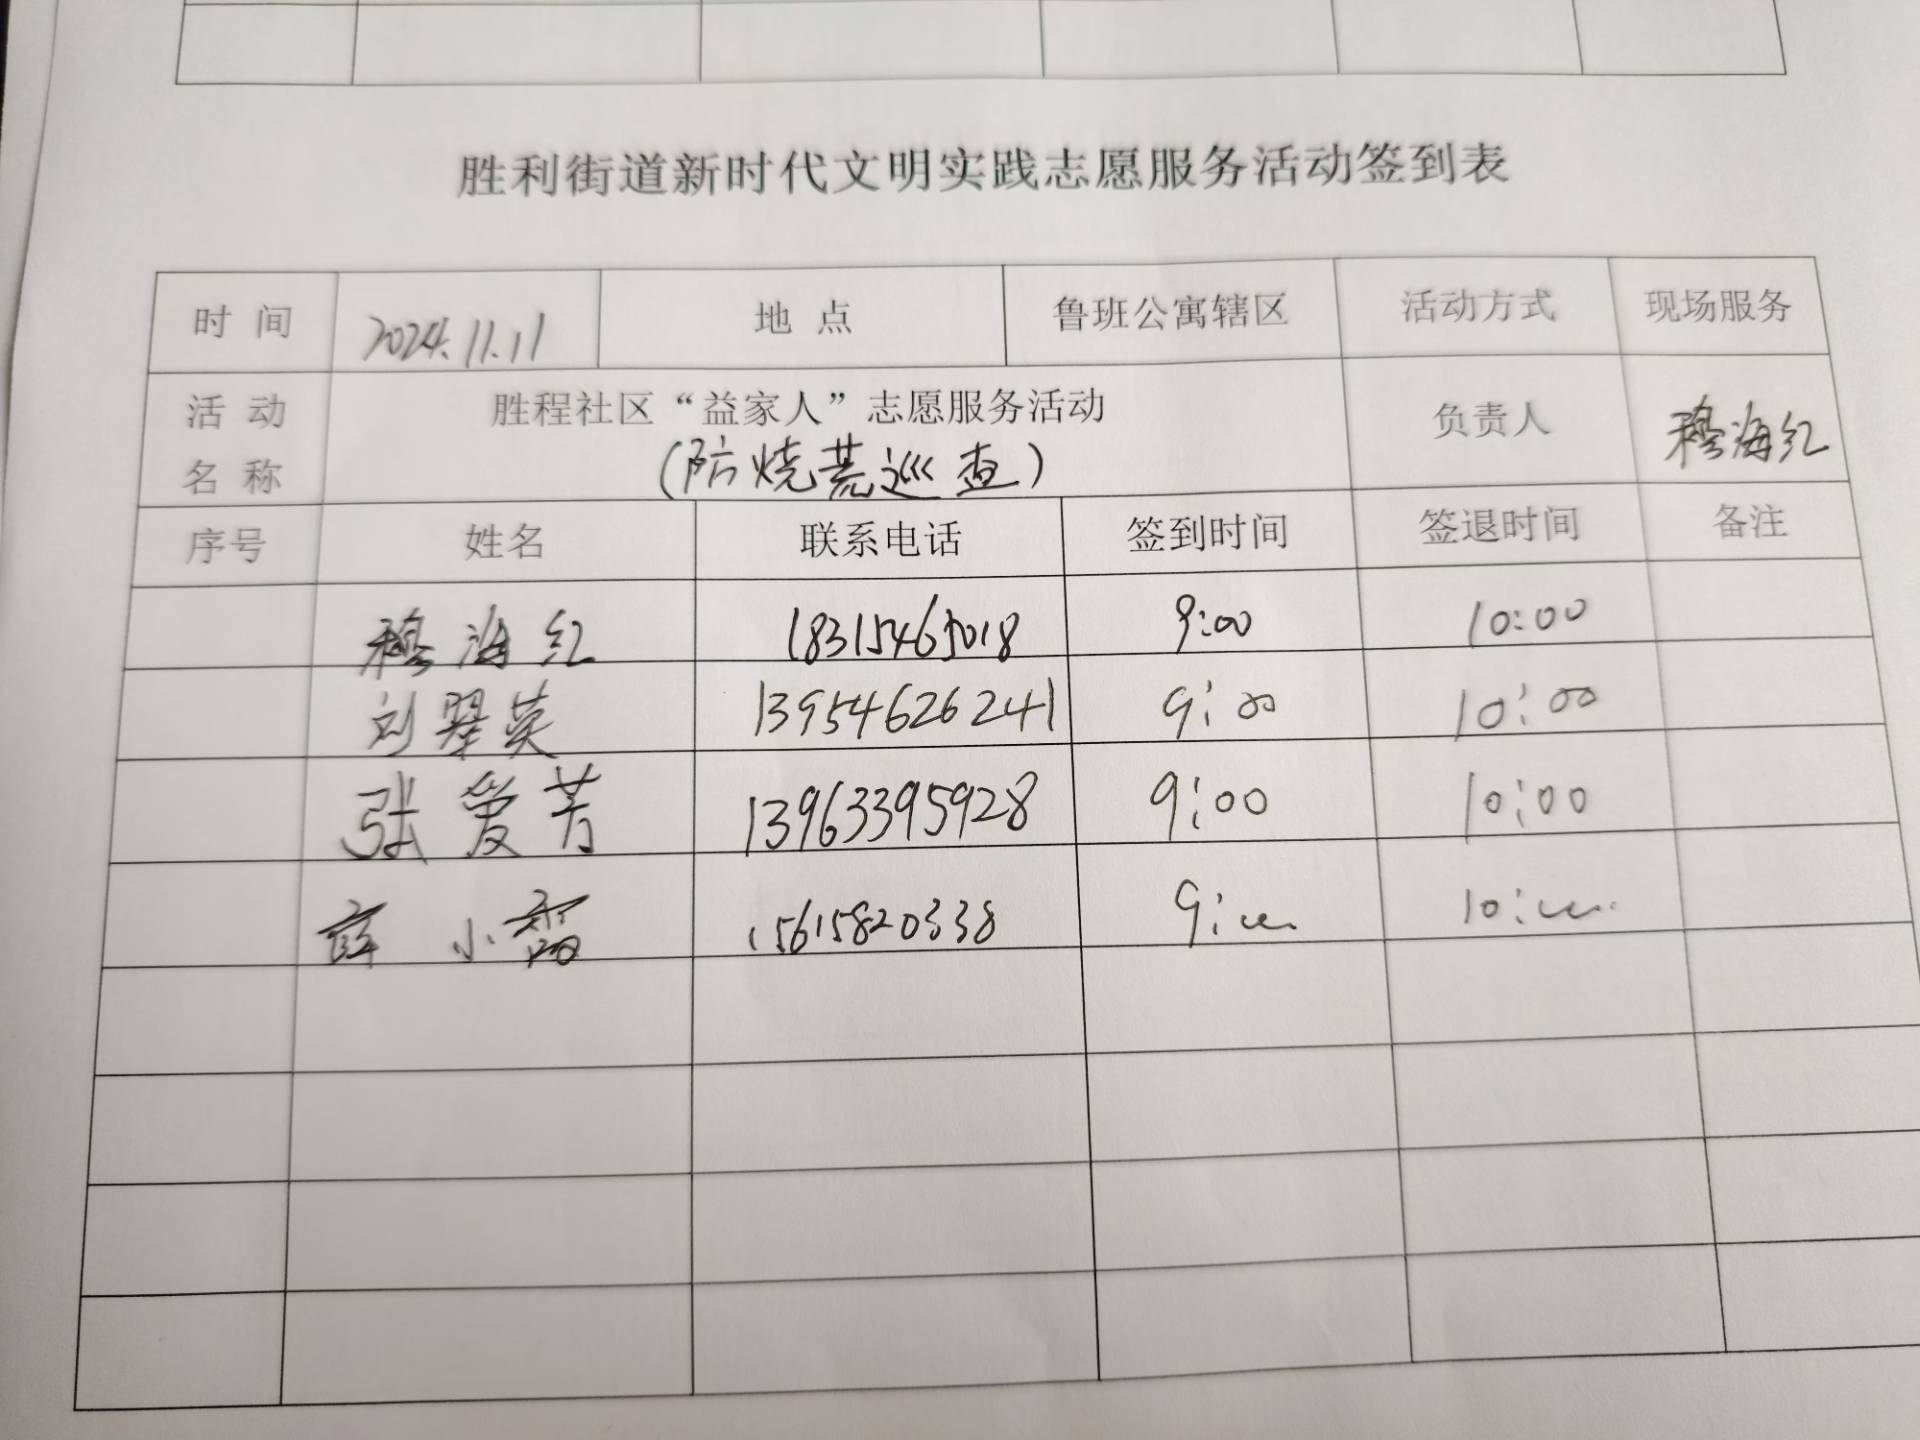 胜利街道新时代文明实践志愿服务活动签到表
时 间 2024.11.11 地 点 鲁班公寓辖区 活动方式 现场服务
活 动 名 称 胜程社区“益家人”志愿服务活动 负责人 穆海红
(防烧荒巡查)
序号 姓名 联系电话 签到时间 签退时间 备注
穆海红 18315465018 9:00 10:00
刘翠英 13954626241 9:00 10:00
张爱芳 13963395928 9:00 10:00
薛小霞 15615820338 9:00 10:00